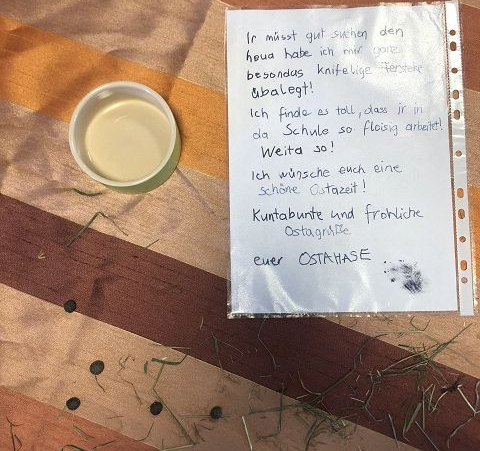 Ir müsst gut suchen den
heua habe ich mir ganz
besondas knifelige Fersteke
übalegt!
Ich finde es toll, dass ir in
da Schule so floisig arbeitet!
Weita so!
Ich wünsche euch eine
schöne Ostazeit!
Kuntabunte und fröhliche
Ostagrüße
euer OSTAHASE